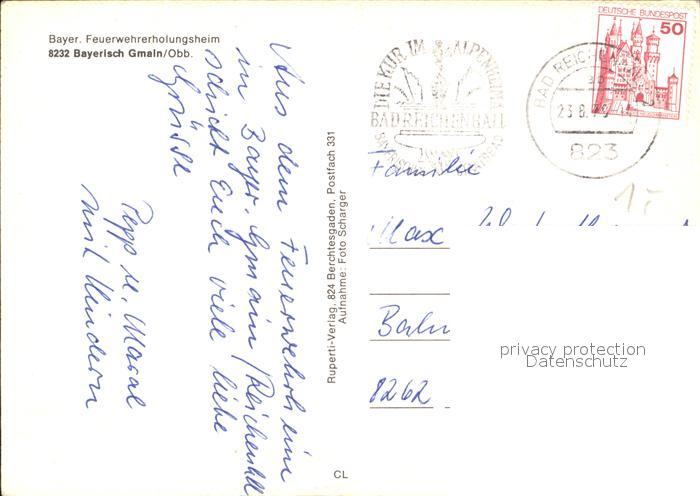 Bayer. Feuerwehrerholungsheim
8232 Bayerisch Gmain/Obb.
Aus dem Feuerwehrheim
in Bayr. Gmain/Reichenhall
schickt Euch viele liebe
Grüsse
Sepp u.
mit Kindern
Ruperti-Verlag, 824 Berchtesgaden, Postfach 331
Aufnahme: Foto Scharger
CL
DIE KUR IM ALPENKLIMA
BAD REICHENHALL
DEUTSCHE BUNDESPOST
50
BAD REICHENHALL
23.8.79
823
1,-
Familie
Max
8262
privacy protection
Datenschutz